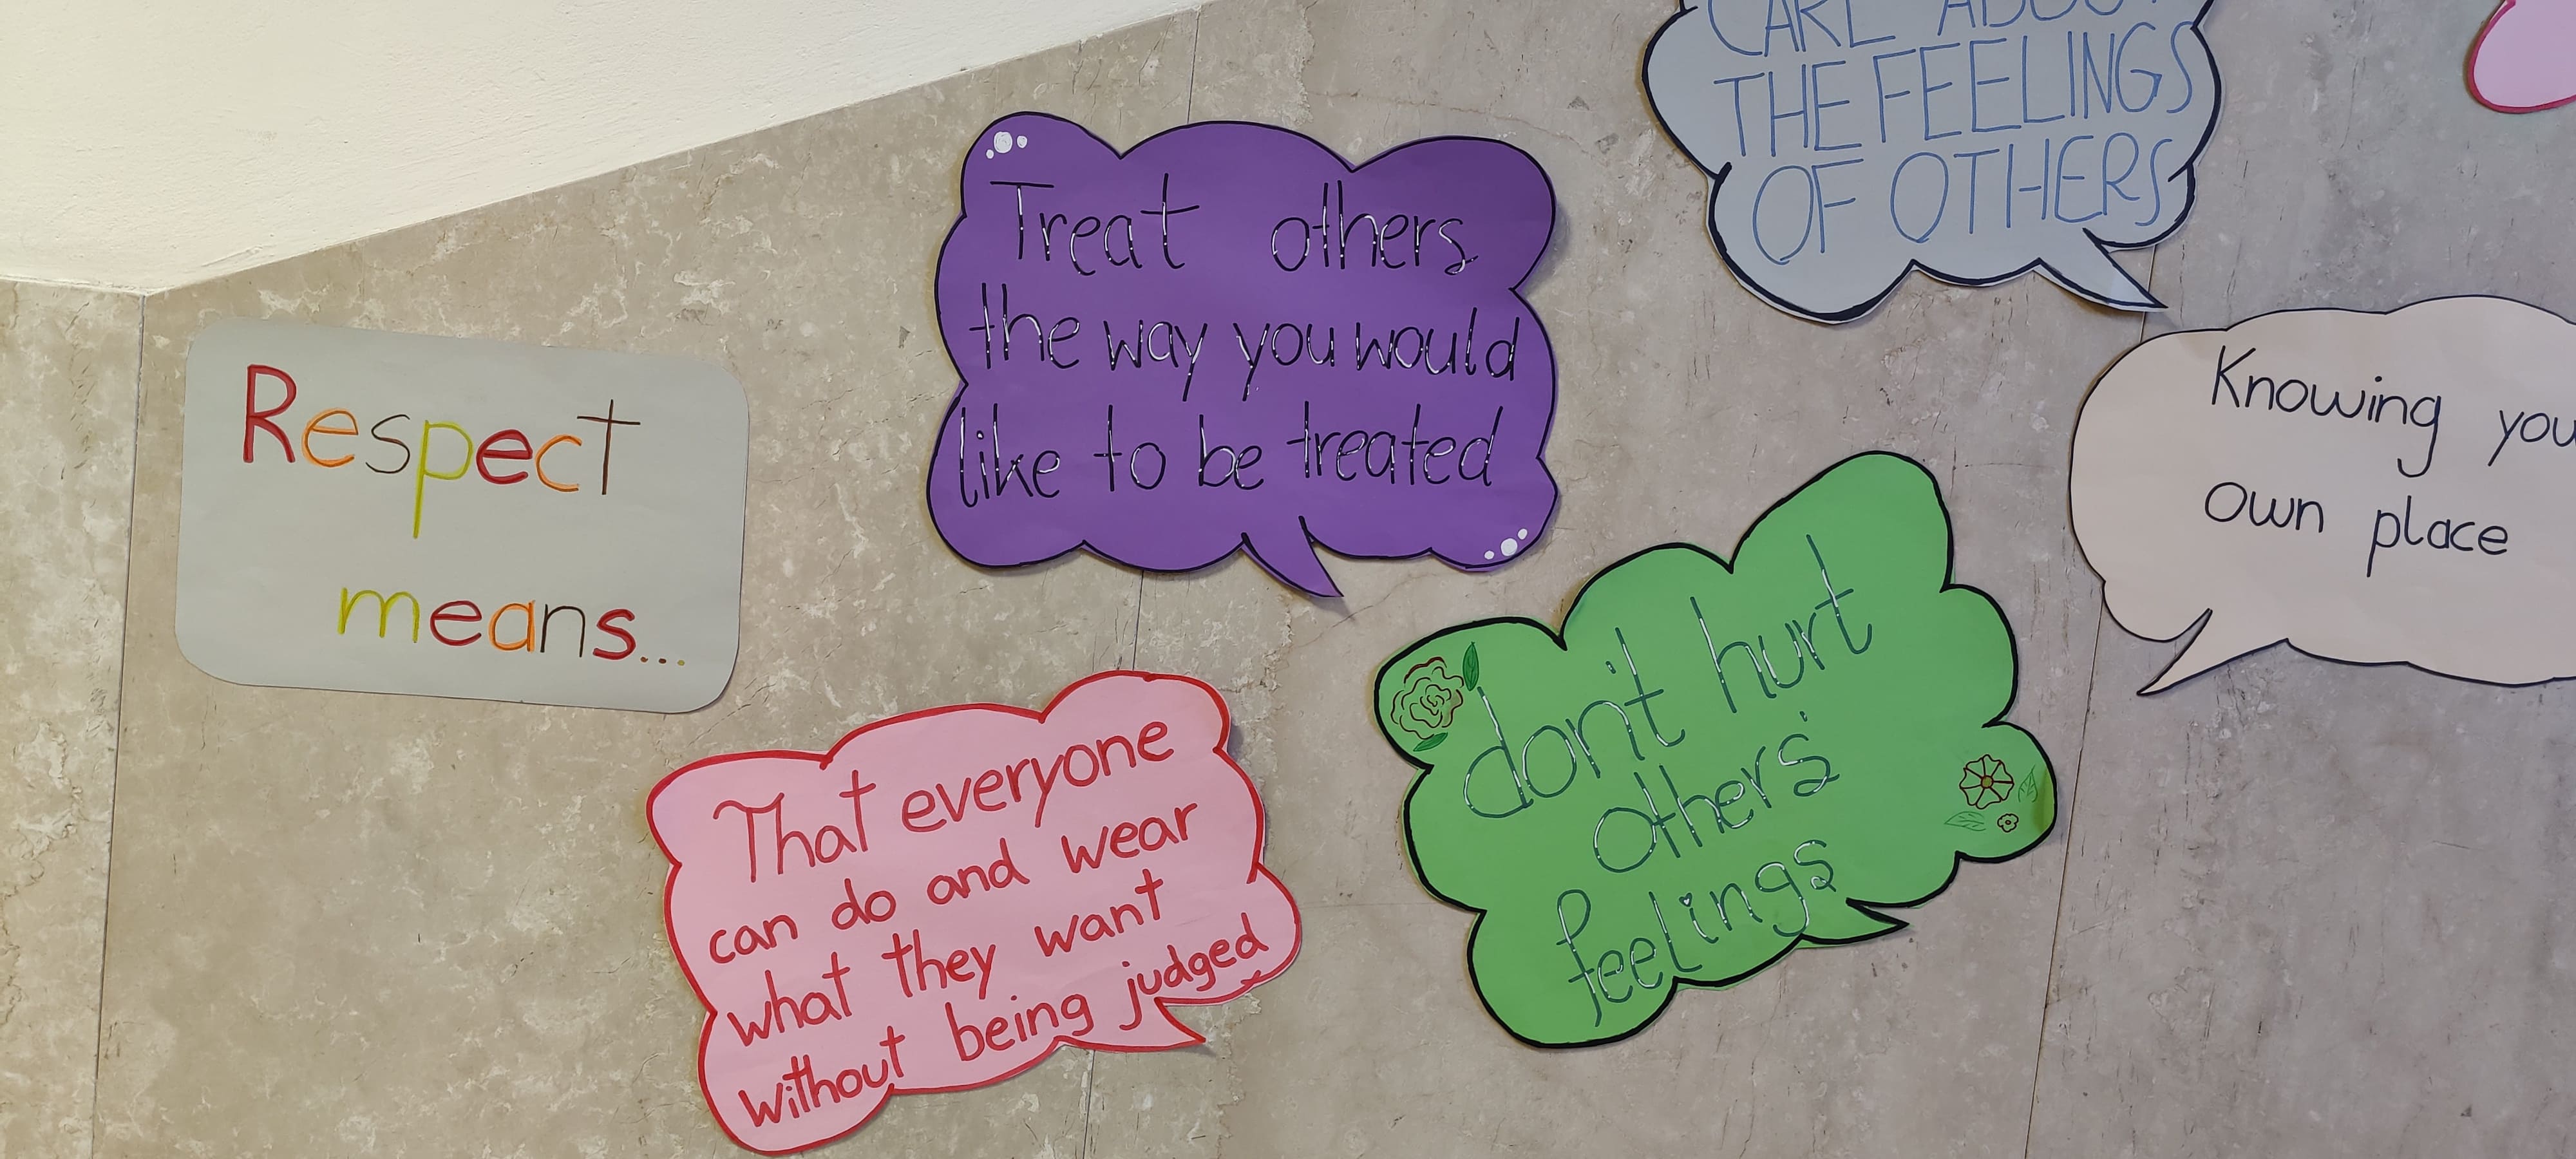 Respect
means...
Treat others
the way you would
like to be treated
CARE ABOUT
THE FEELINGS
OF OTHERS
Knowing you
own place
don't hurt
others'
feelings
That everyone
can do and wear
what they want
without being judged